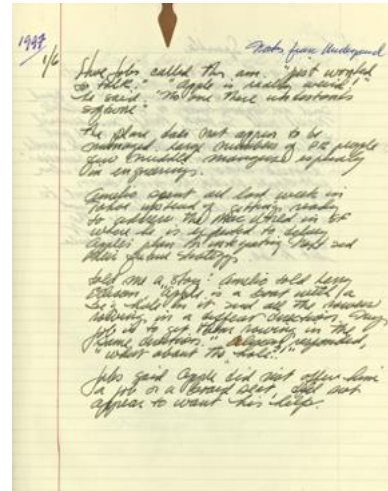 1997
Notes from Underground
1/6
Steve Jobs called this am. "just wanted
to talk." "Apple is really weird,"
he said "No one there understands
software"
The place does not appear to be
managed. Large numbers of people
few middle managers especially
in engineering.
Amelio spent all last week in
instead of getting ready
to address the Mac World in SF
where he is expected to
Apple's plan to integrating Next and
their future strategy.
told me a story: Amelio told
"Apple is a boat with a
big hole in it and all the rowers
rowing in a different direction. My
job is to get them rowing in the
same direction." responded,
"what about the hole?"
Jobs said Apple did not offer him
a job or a board seat, did not
appear to want his help.